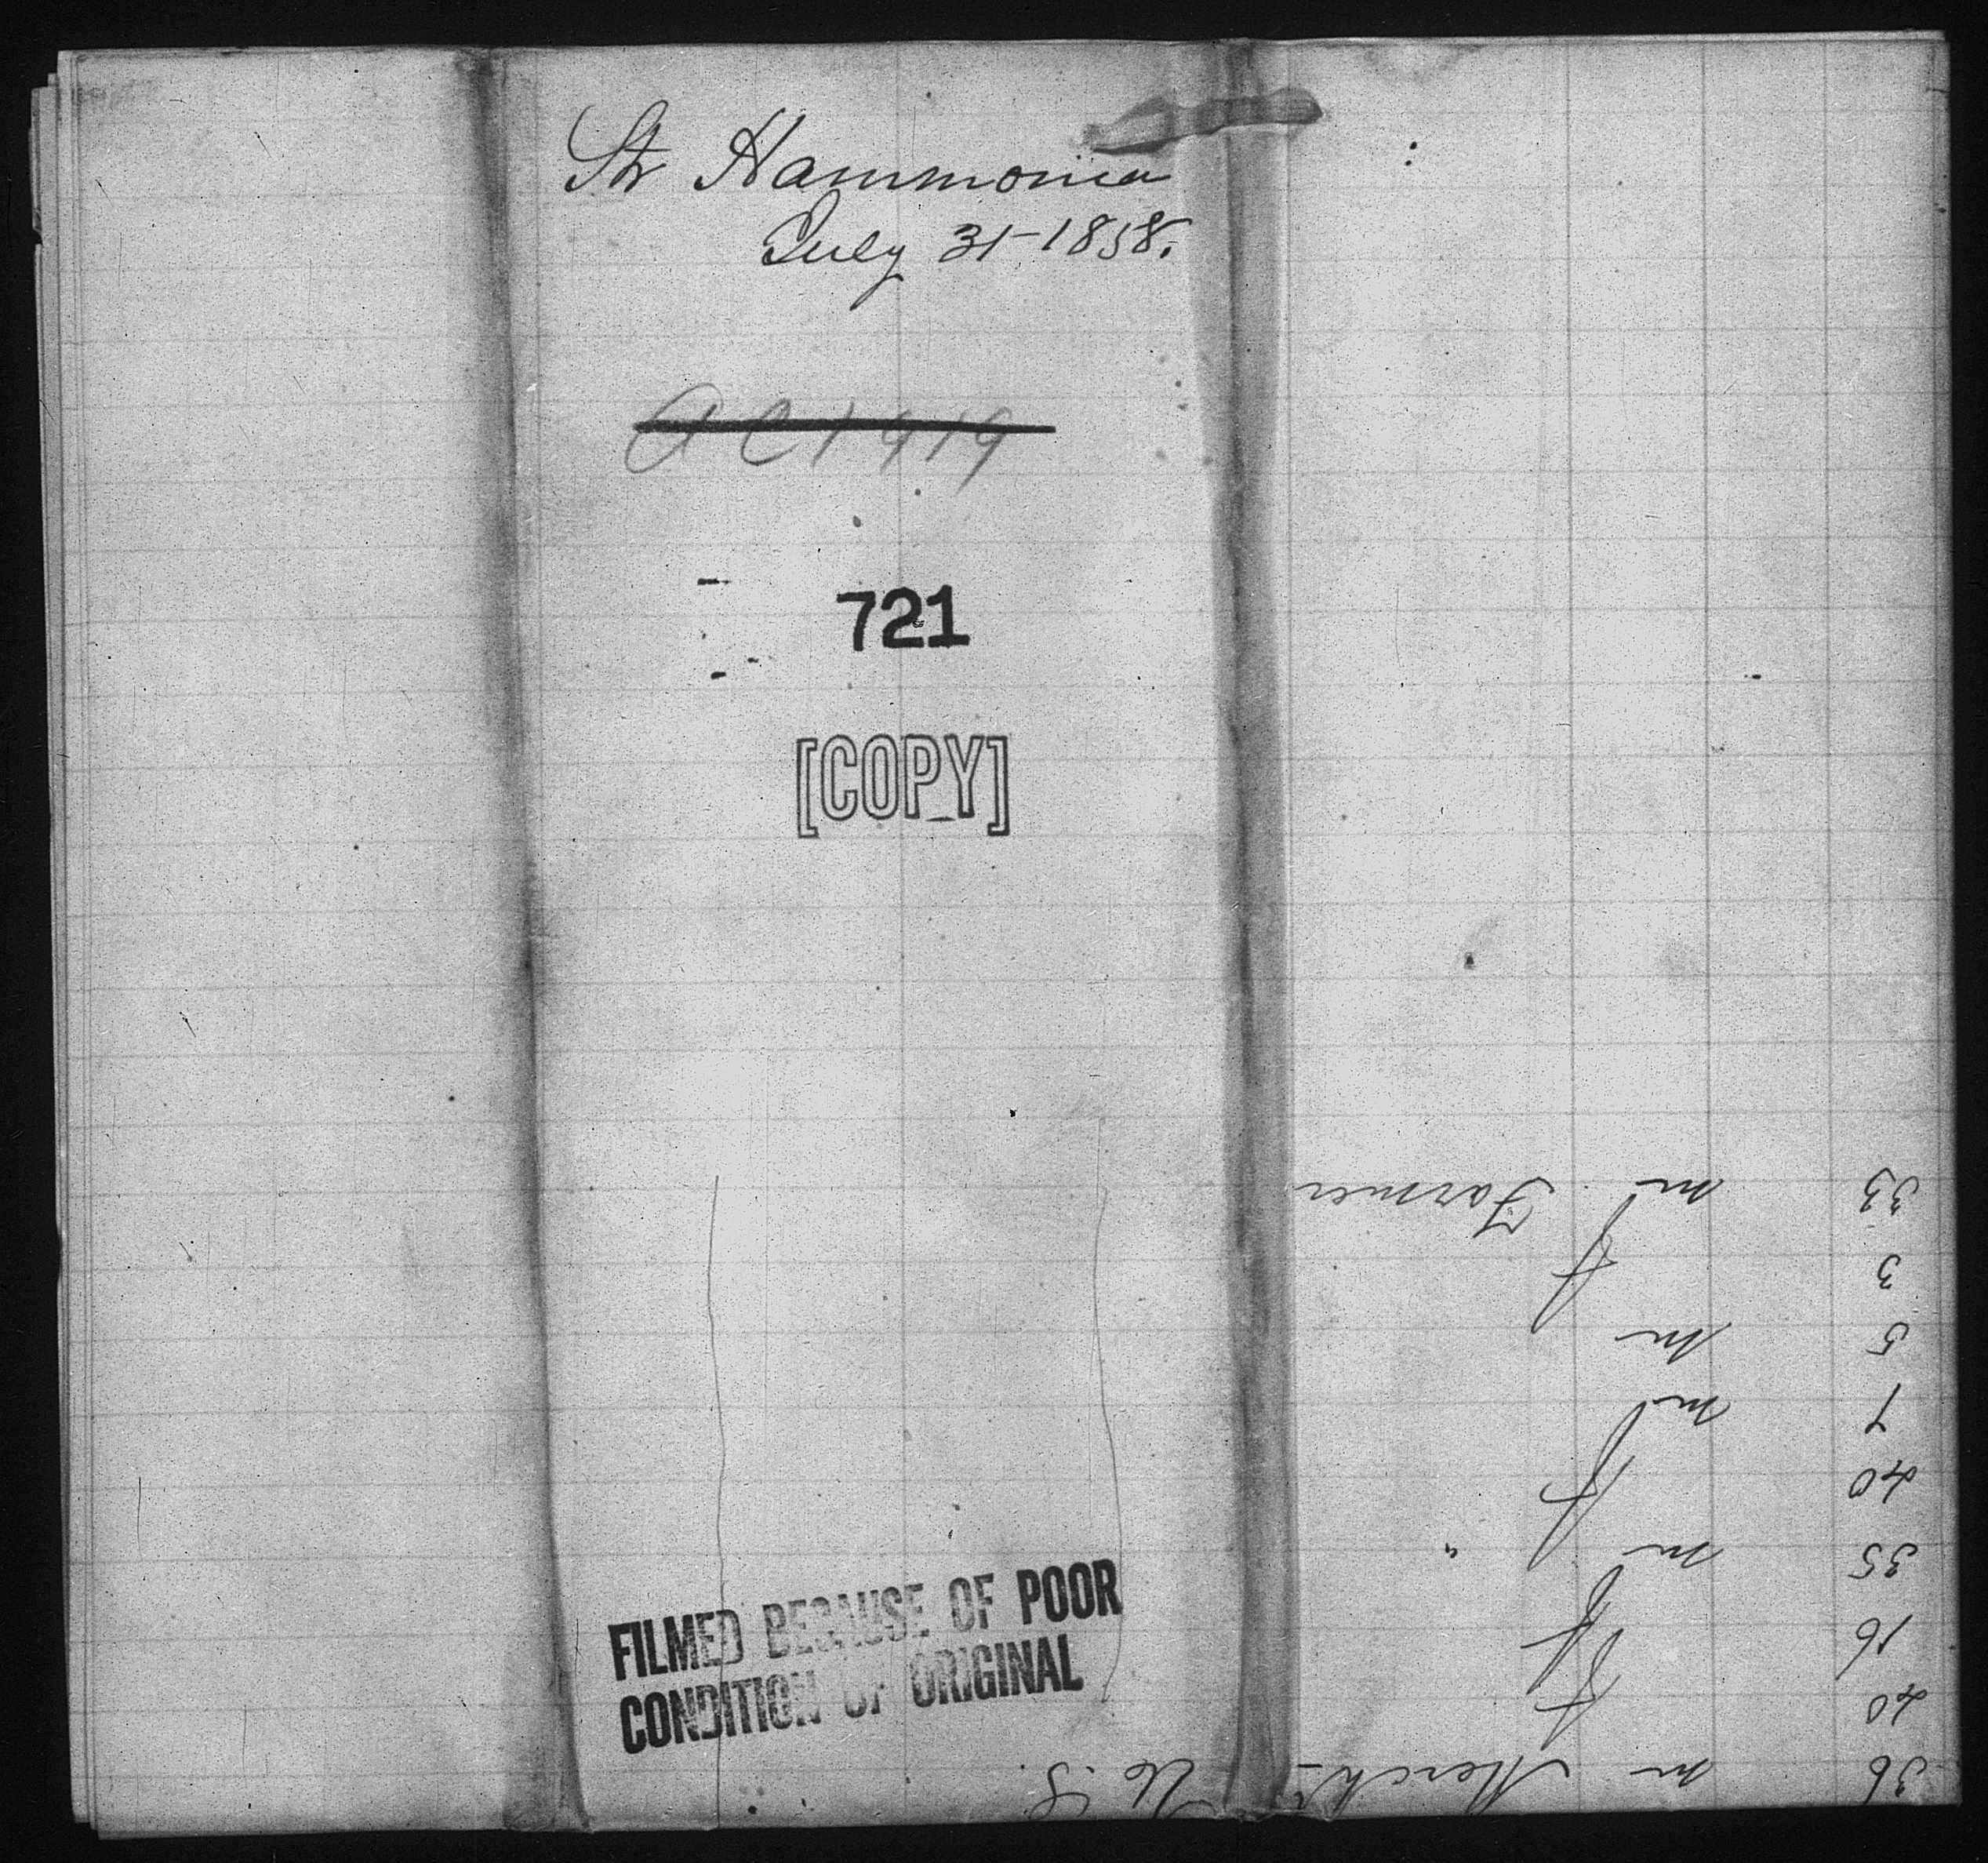 Str Hammonia
July 31-1858.
721
[COPY]
FILMED BECAUSE OF POOR
CONDITION OF ORIGINAL
36 m Mercht U.S.
40 f
16 f
35 m "
40 f
7 m
5 m
3 f
33 m Farmer